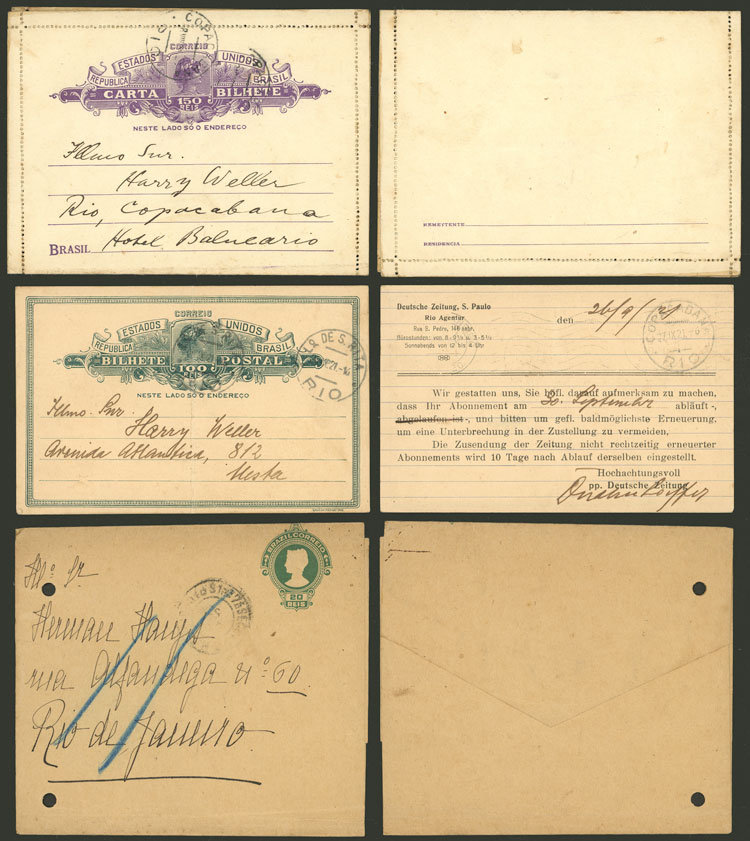 CORREIO
ESTADOS UNIDOS
REPUBLICA BRASIL
CARTA 150 BILHETE
REIS
NESTE LADO SÓ O ENDEREÇO
Illmo Snr.
Harry Weller
Rio, Copacabana
BRASIL Hotel Balneario
REMETTENTE
RESIDENCIA
CORREIO
ESTADOS UNIDOS
REPUBLICA BRASIL
BILHETE 100 POSTAL
REIS
NESTE LADO SÓ O ENDEREÇO
Illmo. Snr.
Harry Weller
Avenida Atlantica, 812
Nesta
RIO
Deutsche Zeitung, S. Paulo
Rio Agentur
Rua S. Pedro, 146 sobr.
Bürostunden: von 8-9½ u. 3-5½
Sonnabends von 12 bis 4 Uhr
den 26/9/21
COPACABANA
RIO
Wir gestatten uns, Sie höfl. darauf aufmerksam zu machen,
dass Ihr Abonnement am 30. September abläuft -,
abgelaufen ist -, und bitten um gefl. baldmöglichste Erneuerung,
um eine Unterbrechung in der Zustellung zu vermeiden,
Die Zusendung der Zeitung nicht rechtzeitig erneuerter
Abonnements wird 10 Tage nach Ablauf derselben eingestellt.
Hochachtungsvoll
pp. Deutsche Zeitung
BRAZIL CORREIO
20
REIS
Herman
rua Alfandega nº 60
Rio de Janeiro